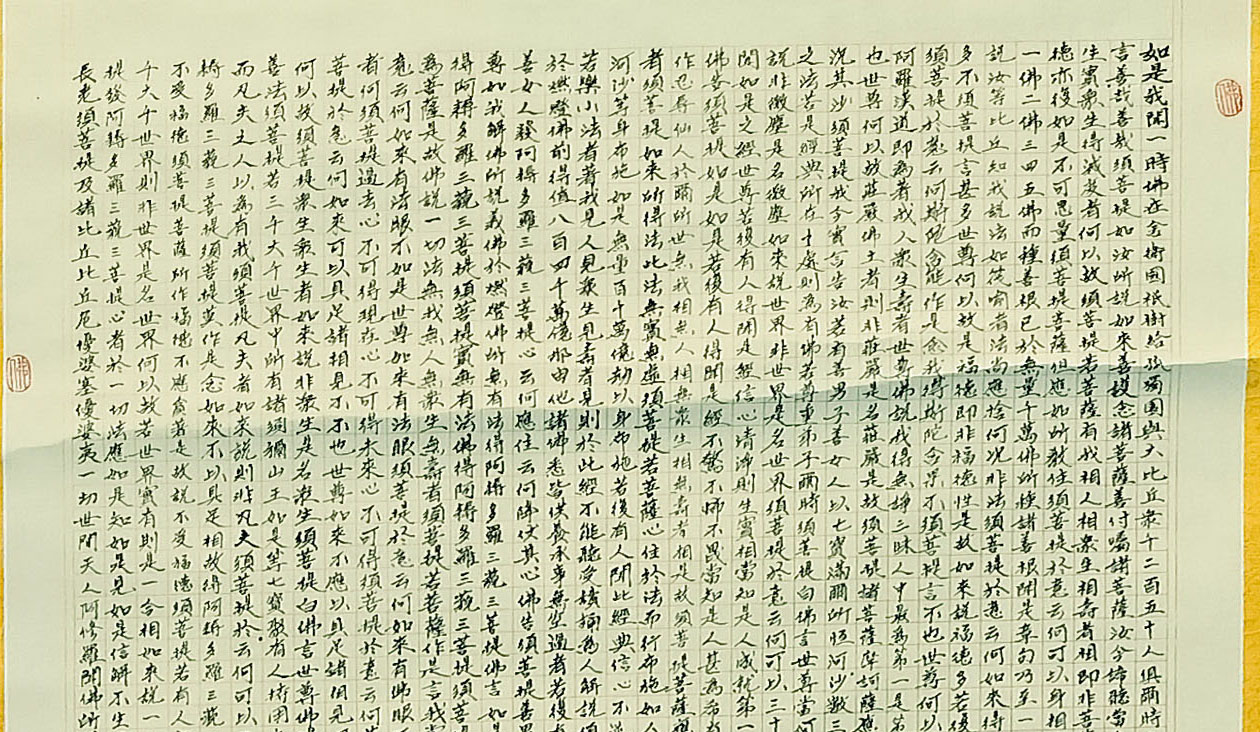 如是我聞一時佛在舍衛國祇樹給孤獨園與大比丘眾千二百五十人俱爾時
言善哉善哉須菩提如汝所說如來善護念諸菩薩善付囑諸菩薩汝今諦聽當
生實眾生得滅度者何以故須菩提若菩薩有我相人相眾生相壽者相即非菩
德亦復如是不可思量須菩提菩薩但應如所教住須菩提於意云何可以身相
一佛二佛三四五佛而種善根已於無量千萬佛所種諸善根聞是章句乃至一
說汝等比丘知我說法如筏喻者法尚應捨何況非法須菩提於意云何如來得
多不須菩提言甚多世尊何以故是福德即非福德性是故如來說福德多若復
須菩提於意云何斯陀含能作是念我得斯陀含果不須菩提言不也世尊何以
阿羅漢道即為著我人眾生壽者世尊佛說我得無諍三昧人中最為第一是第
也世尊何以故莊嚴佛土者則非莊嚴是名莊嚴是故須菩提諸菩薩摩訶薩應
況其沙須菩提我今實言告汝若有善男子善女人以七寶滿爾所恒河沙數三
之法若是經典所在之處則為有佛若尊重弟子爾時須菩提白佛言世尊當何
說非微塵是名微塵如來說世界非世界是名世界須菩提於意云何可以三十
聞如是之經世尊若復有人得聞是經信心清淨則生實相當知是人成就第一
佛告須菩提如是如是若復有人得聞是經不驚不怖不畏當知是人甚為希有
作忍辱仙人於爾所世無我相無人相無眾生相無壽者相是故須菩提菩薩應
者須菩提如來所得法此法無實無虛須菩提若菩薩心住於法而行布施如人
河沙等身布施如是無量百千萬億劫以身布施若復有人聞此經典信心不逆
若樂小法者著我見人見眾生見壽者見則於此經不能聽受讀誦為人解說須
於燃燈佛前得值八百四千萬億那由他諸佛悉皆供養承事無空過者若復有
善女人發阿耨多羅三藐三菩提心云何應住云何降伏其心佛告須菩提善男
尊如我解佛所說義佛於燃燈佛所無有法得阿耨多羅三藐三菩提佛言如是
得阿耨多羅三藐三菩提須菩提實無有法佛得阿耨多羅三藐三菩提須菩提
為菩薩是故佛說一切法無我無人無眾生無壽者須菩提若菩薩作是言我當
意云何如來有法眼不如是世尊如來有法眼須菩提於意云何如來有佛眼
者何須菩提過去心不可得現在心不可得未來心不可得須菩提於意云何
菩提於意云何如來可以具足諸相見不不也世尊如來不應以具足諸相見
何以故須菩提眾生眾生者如來說非眾生是名眾生須菩提白佛言世尊佛
善法須菩提若三千大千世界中所有諸須彌山王如是等七寶聚有人持用
而凡夫之人以為有我須菩提凡夫者如來說則非凡夫須菩提於云何可以
耨多羅三藐三菩提須菩提莫作是念如來不以具足相故得阿耨多羅三藐
不受福德須菩提菩薩所作福德不應貪著是故說不受福德須菩提若有人
千大千世界則非世界是名世界何以故若世界實有則是一合相如來說一
提發阿耨多羅三藐三菩提心者於一切法應如是知如是見如是信解不生
長老須菩提及諸比丘比丘尼優婆塞優婆夷一切世間天人阿修羅聞佛所